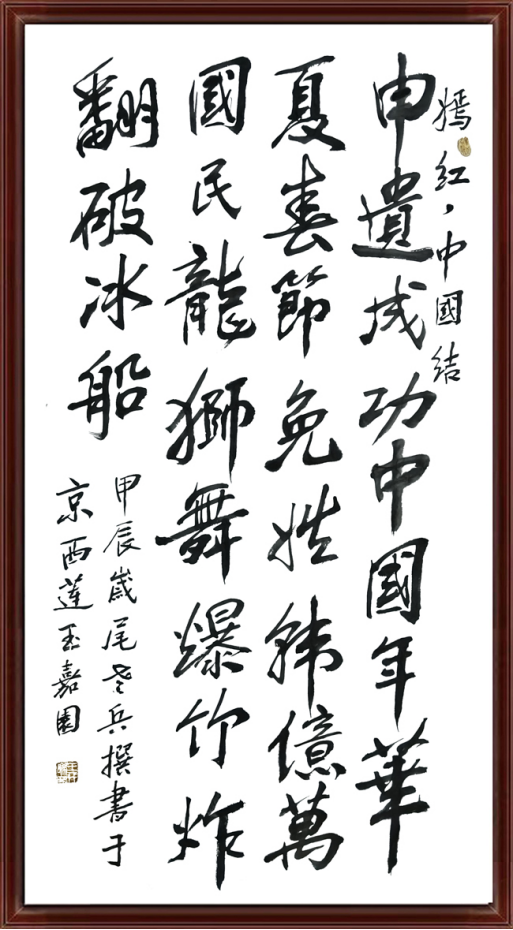 嫣红、中國结
申遺成功中國年華
夏春節免姓韩億萬
國民龍獅舞爆竹炸
翻破冰船
甲辰歲尾老兵撰書于
京西蓮玉嘉園